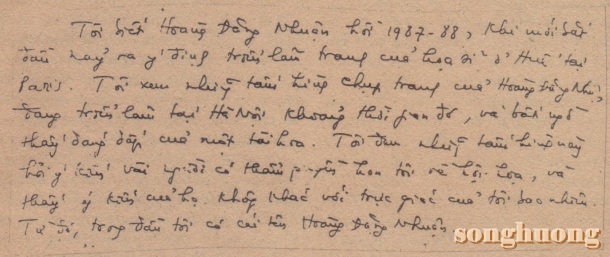 Tôi biết Hoàng Đăng Nhuận hồi 1987-88, khi mới bắt
đầu nảy ra ý định triển lãm tranh của họa sĩ ở Huế tại
Paris. Tôi xem những tấm hình chụp tranh của Hoàng Đăng Nhuận,
đang triển lãm tại Hà Nội khoảng thời gian đó, và bất ngờ
thấy dáng dấp của một tài hoa. Tôi đem những tấm hình này
hỏi ý kiến vài người có thẩm quyền hơn tôi về hội họa, và
thấy ý kiến của họ không khác với trực giác của tôi bao nhiêu.
Từ đó, trong đầu tôi có cái tên Hoàng Đăng Nhuận
songhuong